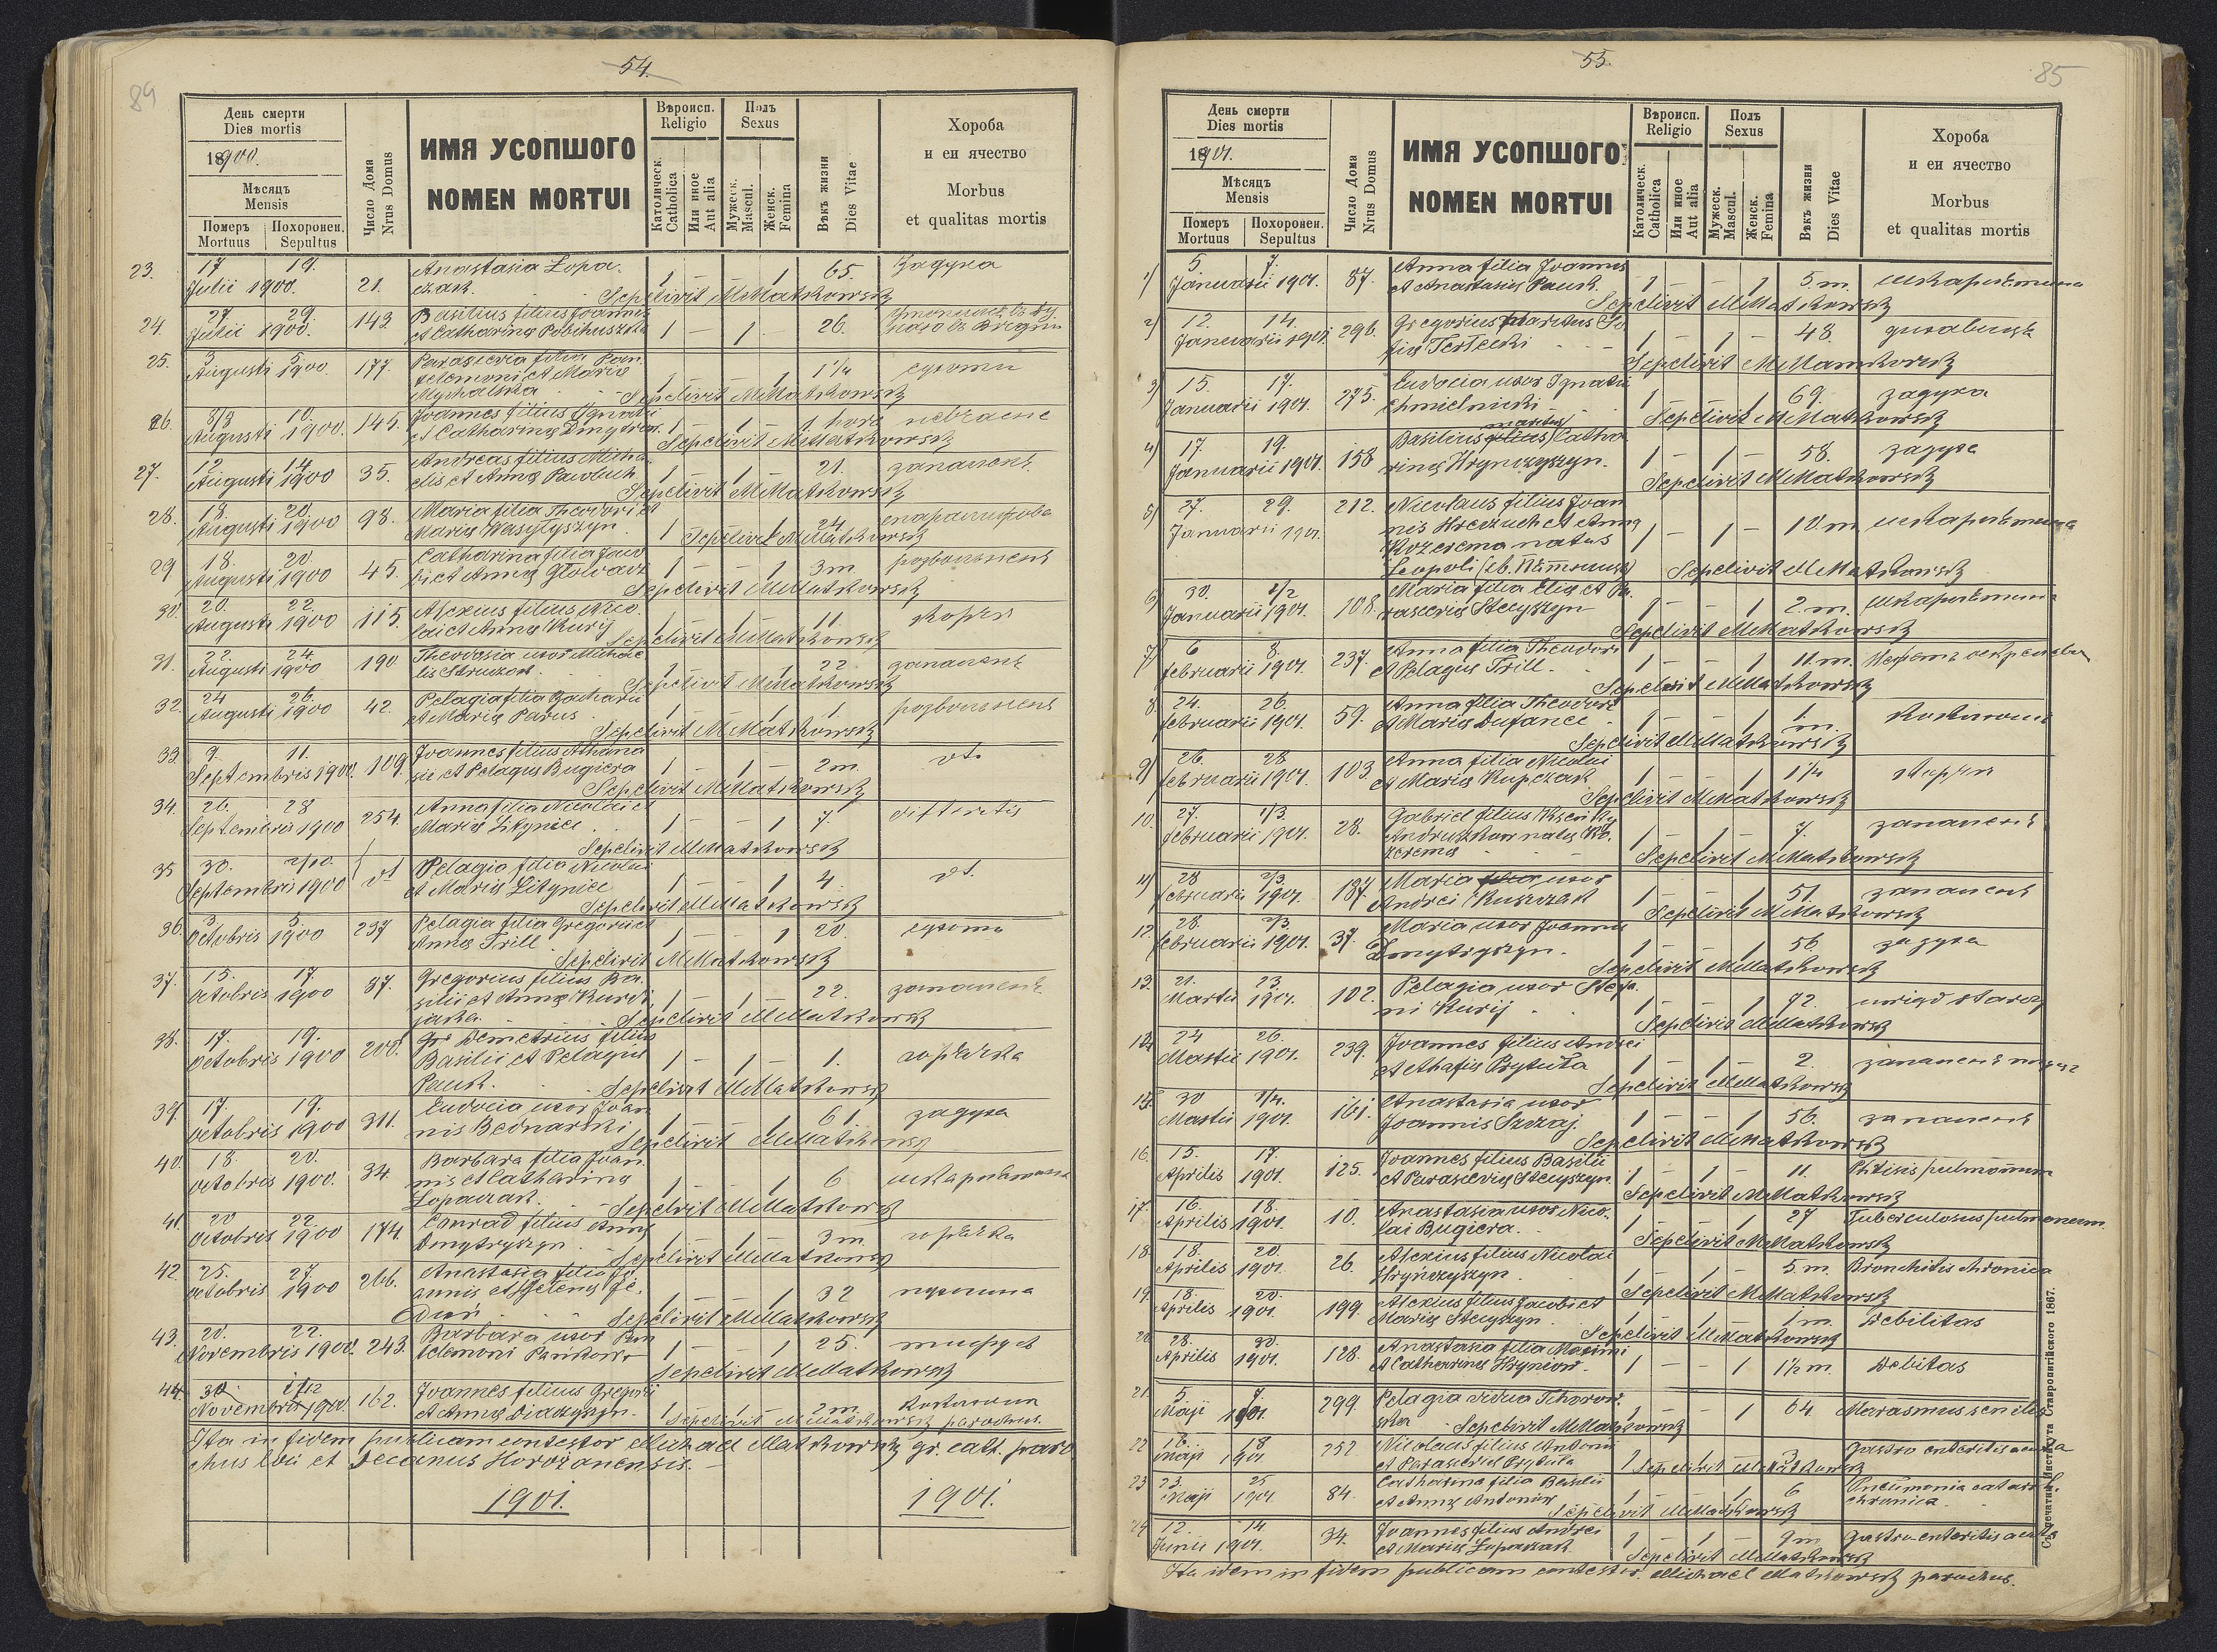 54.
89
День смерти
Dies mortis
1900.
Мѣсяцъ
Mensis
Померъ
Mortuus
Похоронен.
Sepultus
Число Дома
Nrus Domus
ИМЯ УСОПШОГО
NOMEN MORTUI
Вѣроисп.
Religio
Католическ.
Catholica
Или иное
Aut alia
Полъ
Sexus
Мужеск.
Mascul.
Женск.
Femina
Вѣкъ жизни
Dies Vitae
Хороба
и еи ячество
Morbus
et qualitas mortis
23. 17 19. Julii 1900. 21. Anastasia Lopaczak. 1 – – 1 65. Задуха
Sepelivit MMatkowsky
24. 27 29. Julii 1900. 143. Basilius filius Joannis
et Catharina 1 – 1 – 26.
25. 3 5. Augusti 1900. 177. Parascevia filia Pantelemoni et Maria
1 – – 1 1 1/4 сухоти
Sepelivit MMatkowsky
26. 8/8 10. Augusti 1900. 145. Joannes filius Ignatii
et Catharina Dmytrysz. 1 – 1 – 1 hora
Sepelivit MMatkowsky
27. 12 14 Augusti 1900 35. Andreas filius Michaelis et Anna Pawluch 1 – 1 – 21. запаленє
Sepelivit MMatkowsky
28. 18. 20. Augusti 1900 98. Maria filia Theodori et
Maria Wasylyszyn 1 24.
Sepelivit MMatkowsky
29 18. 20. Augusti 1900 45. Catharina filia Jacobi et Anna Głowacz 1 – – 1 3 m
Sepelivit MMatkowsky
30. 20. 22. Augusti 1900 115. Alexius filius Nicolai et Anna Kurij 1 – 1 – 11.
Sepelivit MMatkowsky
31. 22. 24. Augusti 1900 190. Theodosia uxor Michaelis 1 – – 1 22 запаленє
Sepelivit MMatkowsky
32. 24 26. Augusti 1900 42. Pelagia filia Zachariae
et Maria Parus 1 – – 1 1
Sepelivit MMatkowsky
33. 9. 11. Septembris 1900. 109. Joannes filius Athanasii et Pelagia Bugiera 1 – 1 – 2 m dto
Sepelivit MMatkowsky
34. 26. 28 Septembris 1900 254. Anna filia Nicolai et
Maria Litynice 1 – – 1 7 difteritis
Sepelivit MMatkowsky
35 30. 2/10. Septembris 1900 dt Pelagia filia Nicolai
et Maria Litynice 1 – – 1 4. dt.
Sepelivit MMatkowsky
36. 3. 5. Octobris 1900 237 Pelagia filia Gregorii et
Anna Trill 1 – – 1 20. сухоты
Sepelivit MMatkowsky
37. 15. 17. Octobris 1900 87. Gregorius filius Basilii et Anna 1 – 1 – 22. запаленє
Sepelivit MMatkowsky
38. 17. 19. Octobris 1900 200. Demetrius filius
Basilii et Pelagia
Pauk. 1 – 1 – 1. горѣчка
Sepelivit MMatkowsky
39. 17. 19. Octobris 1900 311. Eudocia uxor Joannis Bednarski 1 – – 1 61 задуха
Sepelivit MMatkowsky
40. 18. 20. Octobris 1900. 34. Barbara filia Joannis et Catharina
Lopaczak. 1 – – 1 6 шкарлятина
Sepelivit MMatkowsky
41. 20 22. Octobris 1900 174. Conrad filius Anna
Dmytryszyn 1 – 1 – 3 m горѣчка
Sepelivit MMatkowsky
42. 25. 27. Octobris 1900 266. Anastasia filia Joannis et Helena 1 – – 1 32
Sepelivit MMatkowsky
43. 20. 22. Novembris 1900. 243. Barbara uxor Pantelemoni Pańkow 1 – – 1 25. тифус
Sepelivit MMatkowsky
44. 30 1/12 Novembris 1900. 162. Joannes filius Gregorii
et Anna Diaczyszyn. 1 – 1 – 2 m
Sepelivit MMatkowsky parochus.
Ita in fidem publicam contestor Michael Matkowsky gr. cath. parochus loci et Decanus Horożanensis.
1901. 1901.
55.
85
День смерти
Dies mortis
1901.
Мѣсяцъ
Mensis
Померъ
Mortuus
Похоронен.
Sepultus
Число Дома
Nrus Domus
ИМЯ УСОПШОГО
NOMEN MORTUI
Вѣроисп.
Religio
Католическ.
Catholica
Или иное
Aut alia
Полъ
Sexus
Мужеск.
Mascul.
Женск.
Femina
Вѣкъ жизни
Dies Vitae
Хороба
и еи ячество
Morbus
et qualitas mortis
1) 5. 7. Januarii 1901. 87. Anna filia Joannis
et Anastasia Pauk. 1 – – 1 5. m. шкарлятина
Sepelivit MMatkowsky
2) 12. 14. Januarii 1901 296. Gregorius maritus Sofia Terlecki 1 – 1 – 48.
Sepelivit MMatkowsky
3) 15. 17. Januarii 1901. 275. Eudocia uxor Ignatii
Chmielnicki 1 – – 1 69. задуха
Sepelivit MMatkowsky
4) 17. 19. Januarii 1901. 158 Basilius maritus Catharina Hrynczyszyn. 1 – 1 – 58. задуха
Sepelivit MMatkowsky
5) 27. 29. Januarii 1901. 212. Nicolaus filius Joannis Hreczuch et Anna
Kozerema natus
Leopoli 1 – 1 – 10. m. шкарлятина
Sepelivit MMatkowsky
6) 30. 1/2 Januarii 1901. 108. Maria filia Elia et Parascevia Stecyszyn 1 – – 1 2. m. шкарлятина
Sepelivit MMatkowsky
7) 6 8. Februarii 1901. 237. Anna filia Theodori
et Pelagia Trill. 1 – – 1 11. m.
Sepelivit MMatkowsky
8 24. 26. Februarii 1901. 59. Anna filia Theodori
et Maria Dufanec 1 – – 1 1. m.
Sepelivit MMatkowsky
9) 26. 28 Februarii 1901. 103. Anna filia Nicolai
et Maria Kupczak 1 – – 1 1 1/4
Sepelivit MMatkowsky
10. 27. 1/3. Februarii 1901. 28. Gabriel filius
Andruszkow natus Kozerema 1 – 1 – 7. запаленє
Sepelivit MMatkowsky
11) 28 2/3 Februarii 1901. 187. Maria uxor
Andrei 1 – – 1 51. запаленє
Sepelivit MMatkowsky
12. 28. 2/3. Februarii 1901. 37. Maria uxor Joannis
Dmytryszyn. 1 – – 1 56. задуха
Sepelivit MMatkowsky
13. 21. 23. Martii 1901. 102. Pelagia uxor Stefani Kurij 1 – – 1 72.
Sepelivit MMatkowsky
14. 24 26. Martii 1901. 239. Joannes filius Andrei
et Ahafia Prytuła 1 – 1 – 2. запаленє
Sepelivit MMatkowsky
15. 30 1/4. Martii 1901. 161. Anastasia uxor
Joannis 1 – – 1 56. запаленє
Sepelivit MMatkowsky
16. 15. 17. Aprilis 1901. 125. Joannes filius Basilii
et Parascevia Stecyszyn 1 – 1 – 11. Phtisis pulmonum
Sepelivit MMatkowsky
17. 16. 18. Aprilis 1901. 10. Anastasia uxor Nicolai Bugiera. 1 – – 1 27 Tuberculosus pulmonum
Sepelivit MMatkowsky
18. 18. 20. Aprilis 1901. 26. Alexius filius Nicolai
Hrynczyszyn 1 – 1 – 5. m. Bronchitis chronica
Sepelivit MMatkowsky
19. 18. 20. Aprilis 1901. 199 Alexius filius Jacobi et
Maria Stecyszyn 1 – 1 – 1 m. Debilitas
Sepelivit MMatkowsky
20 28. 30. Aprilis 1901. 128. Anastasia filia Maximi
et Catharina Hryniow. 1 – – 1 1 1/2 m. Debitas
21. 5 7. Maji 1901. 299. Pelagia vidua 1 – – 1 64. Marasmus senilis
Sepelivit MMatkowsky
22 16. 18 Maji 1901 252 Nicolaus filius Antonii
et Parascevia Prytuła 1 – 1 – 3 Gastro enteritis acuta
Sepelivit MMatkowsky
23 23. 25 Maji 1901 84. Catharina filia Basilii
et Anna Antoniw 1 – – 1 6 Pneumonia catarrh.
chronica.
Sepelivit MMatkowsky
24 12. 14. Junii 1901. 34. Joannes filius Andrei
et Maria Lopaczak 1 – 1 – 9 m Gastro-enteritis acuta
Sepelivit MMatkowsky
Ita idem in fidem publicam contestor. Michael Matkowsky parochus.
Института Ставропигійского 1867.